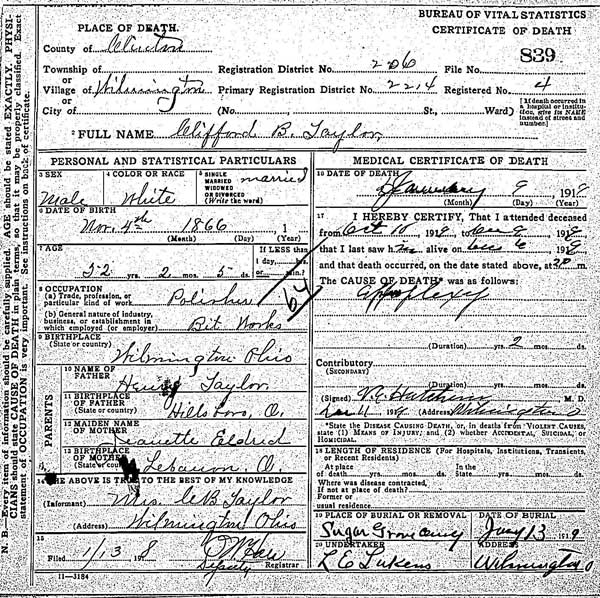 BUREAU OF VITAL STATISTICS
CERTIFICATE OF DEATH
PLACE OF DEATH.
County of Clinton
839
Township of
or
Village of Wilmington
or
City of
Registration District No. 206 File No.
Primary Registration District No. 2214 Registered No. 4
(No. St., Ward)
[If death occurred in a hospital or institution, give its NAME instead of street and number.]
2 FULL NAME Clifford B. Taylor
PERSONAL AND STATISTICAL PARTICULARS
3 SEX
Male
4 COLOR OR RACE
White
5 SINGLE
MARRIED
WIDOWED
OR DIVORCED
(Write the word)
married
6 DATE OF BIRTH
Nov. 4th 1866
(Month) (Day) (Year)
7 AGE
52 yrs. 2 mos. 5 ds.
If LESS than
1 day, hrs.
or min.?
8 OCCUPATION
(a) Trade, profession, or
particular kind of work Polisher
(b) General nature of industry,
business, or establishment in
which employed (or employer) Bit Works
9 BIRTHPLACE
(State or country)
Wilmington Ohio
PARENTS
10 NAME OF
FATHER
Henry Taylor
11 BIRTHPLACE
OF FATHER
(State or country)
Hillsboro, O.
12 MAIDEN NAME
OF MOTHER
Jeanette Eldred
13 BIRTHPLACE
OF MOTHER
(State or country)
Lebanon, O.
14 THE ABOVE IS TRUE TO THE BEST OF MY KNOWLEDGE
(Informant) Mrs. C B Taylor
(Address) Wilmington Ohio
15
Filed 1/13 191 8
Deputy Registrar
11—3184
MEDICAL CERTIFICATE OF DEATH
16 DATE OF DEATH
January 9 191
(Month) (Day) (Year)
17 I HEREBY CERTIFY, That I attended deceased
from Oct 10 191
that I last saw him alive on
and that death occurred, on the date stated above, at m.
The CAUSE OF DEATH* was as follows:
Apoplexy
64
(Duration) yrs. 2 mos. ds.
Contributory
(SECONDARY)
(Duration) yrs. mos. ds.
(Signed) Hutchins M. D.
11 191 (Address) Wilmington O
*State the DISEASE CAUSING DEATH, or, in deaths from VIOLENT CAUSES,
state (1) MEANS OF INJURY; and (2) whether ACCIDENTAL, SUICIDAL, or
HOMICIDAL.
18 LENGTH OF RESIDENCE (For Hospitals, Institutions, Transients,
or Recent Residents)
At place
of death yrs. mos. ds.
In the
State yrs. mos. ds.
Where was disease contracted,
If not at place of death?
Former or
usual residence
19 PLACE OF BURIAL OR REMOVAL
Sugar Grove
DATE OF BURIAL
Jany 13 191
20 UNDERTAKER
L E Lukens
ADDRESS
Wilmington O
N. B.—Every item of information should be carefully supplied. AGE should be stated EXACTLY. PHYSICIANS should state CAUSE OF DEATH in plain terms, so that it may be properly classified. Exact statement of OCCUPATION is very important. See instructions on back of certificate.